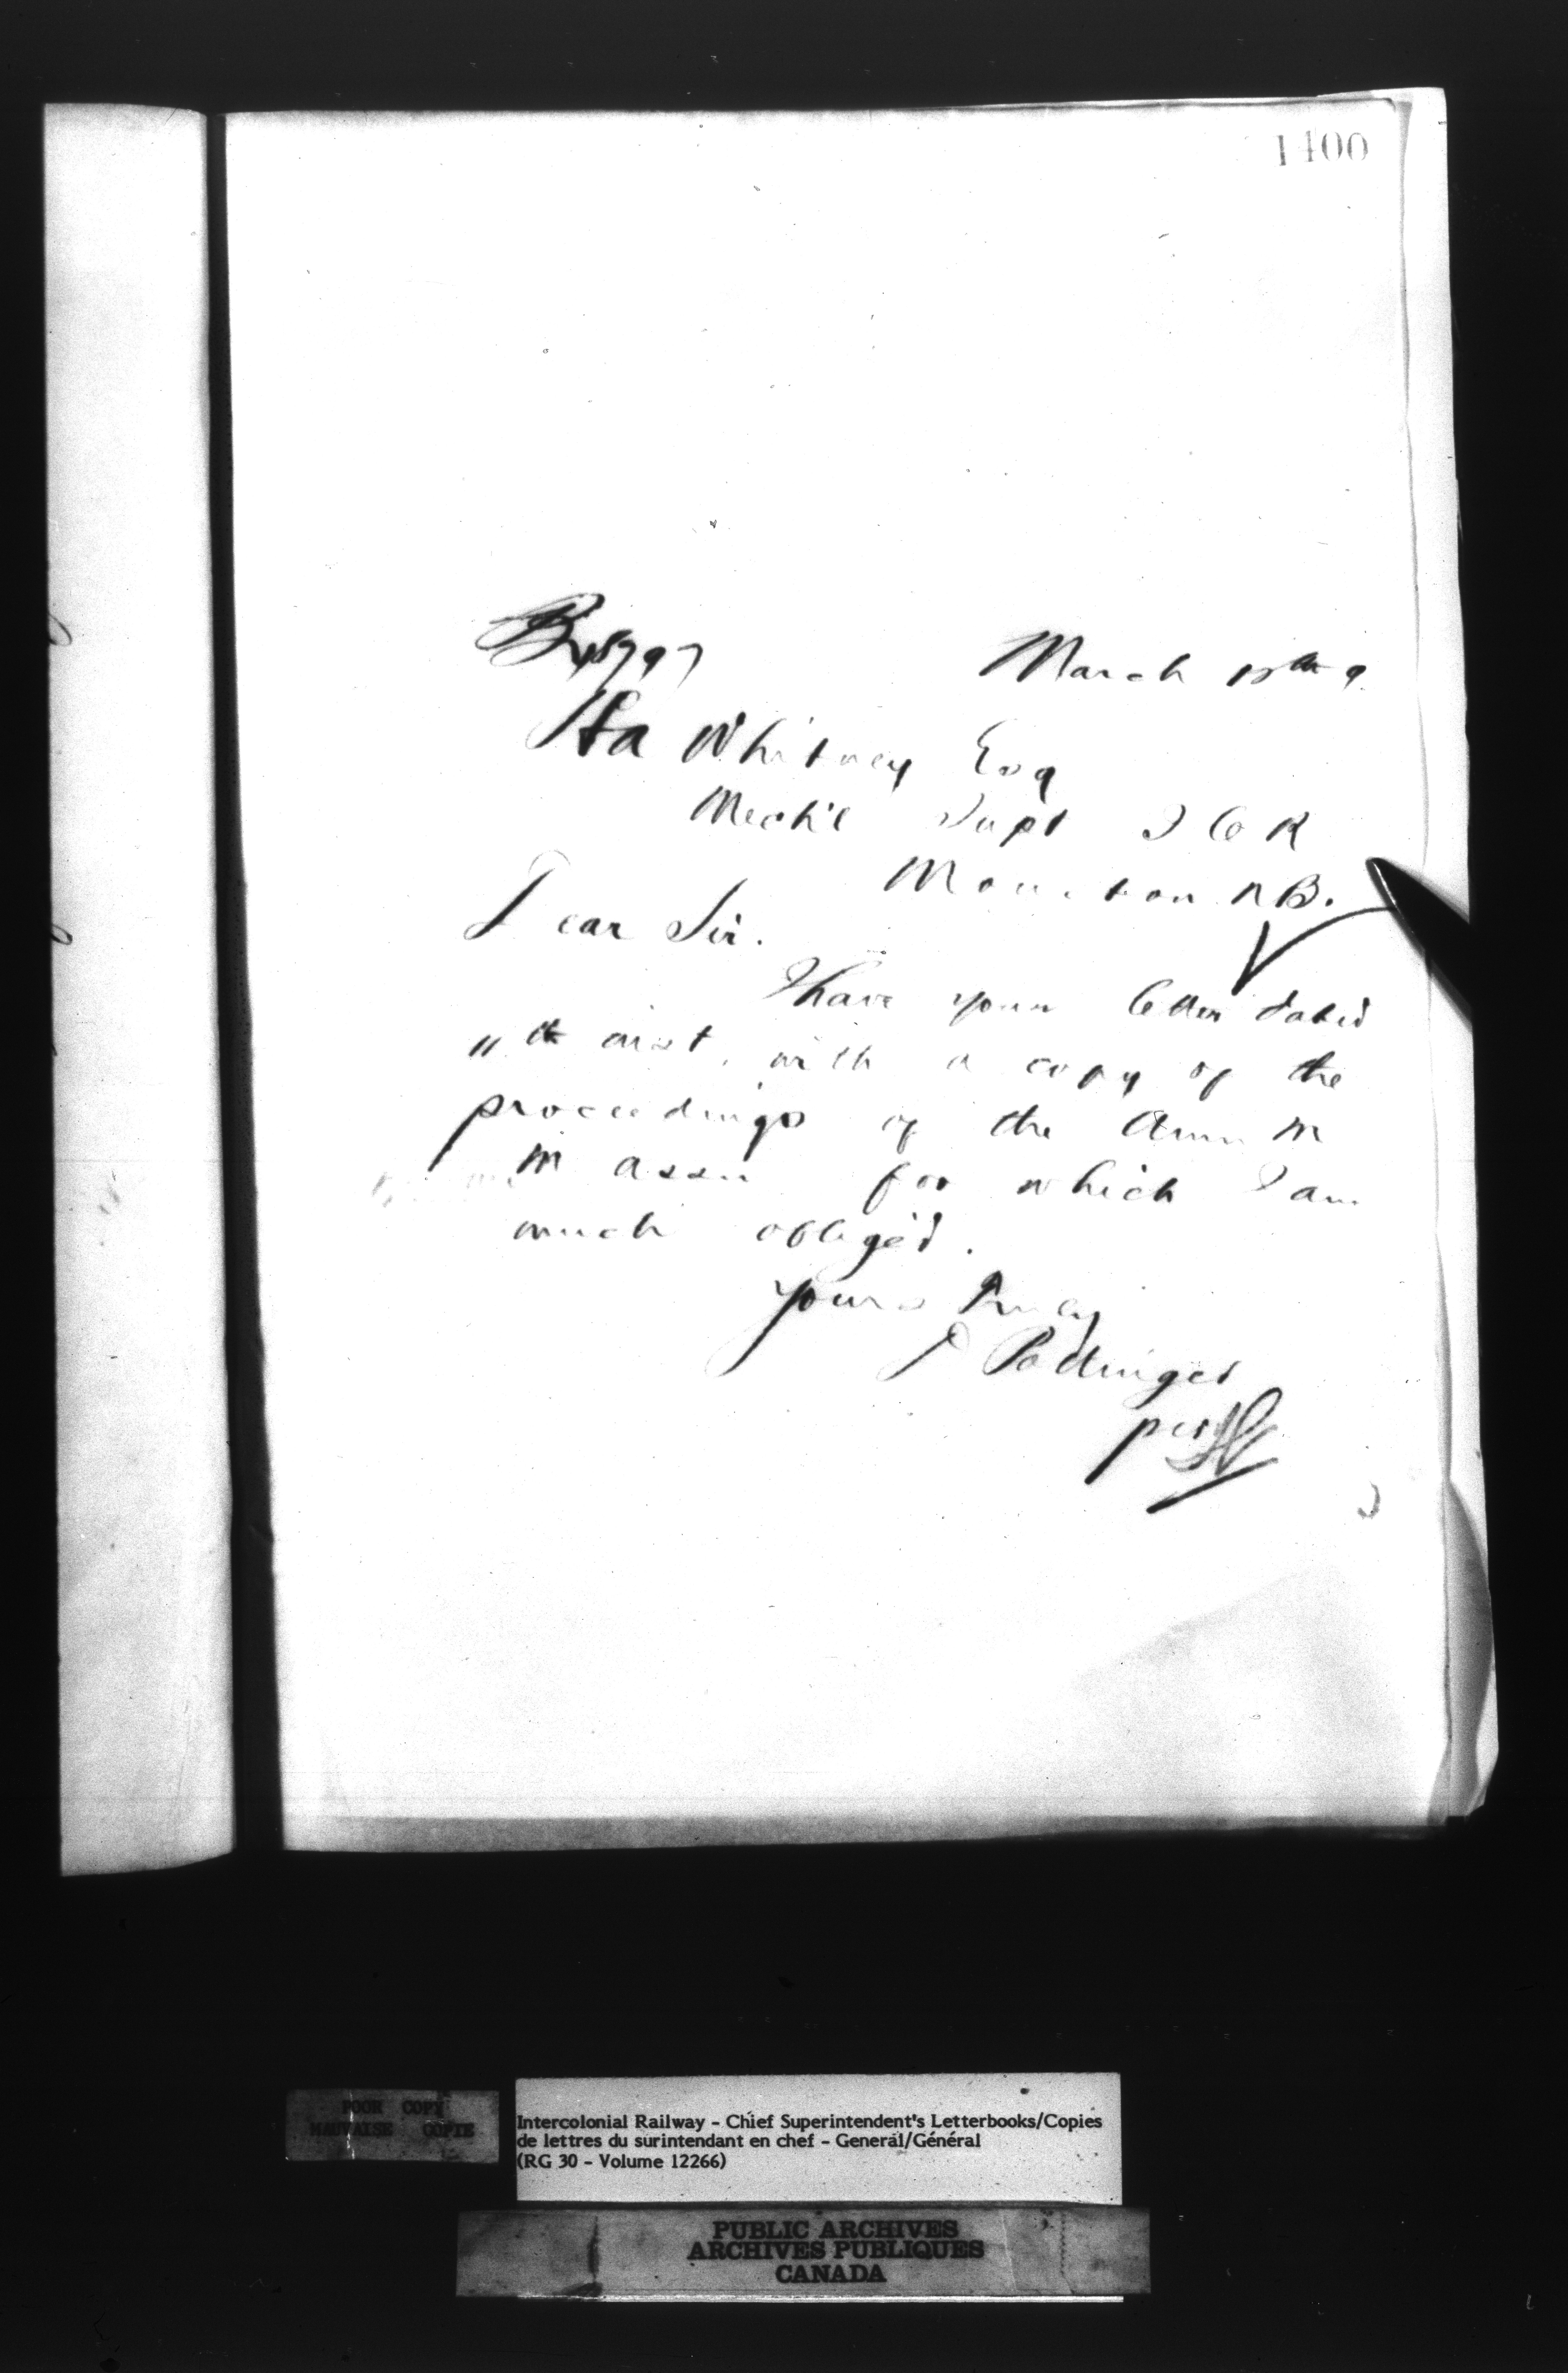 1400
March 15th 9
Ha Whitney Esq
Mech'l Supt I C R
Moncton N.B.
Dear Sir.
I have your letter dated
11th inst, with a copy of the
proceedings of the Amn M
M assn for which I am
much obliged.
Yours truly
D Pottinger
per
POOR COPY
MAUVAISE COPIE
Intercolonial Railway - Chief Superintendent's Letterbooks/Copies
de lettres du surintendant en chef - General/Général
(RG 30 - Volume 12266)
PUBLIC ARCHIVES
ARCHIVES PUBLIQUES
CANADA